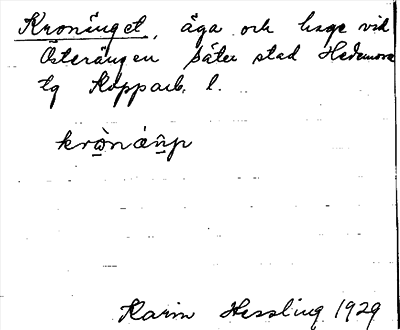 Kronänget, äga och hage vid
Österängen Säter stad Hedemora
tg Kopparb. l.
krònáñp
Karin Hessling 1929